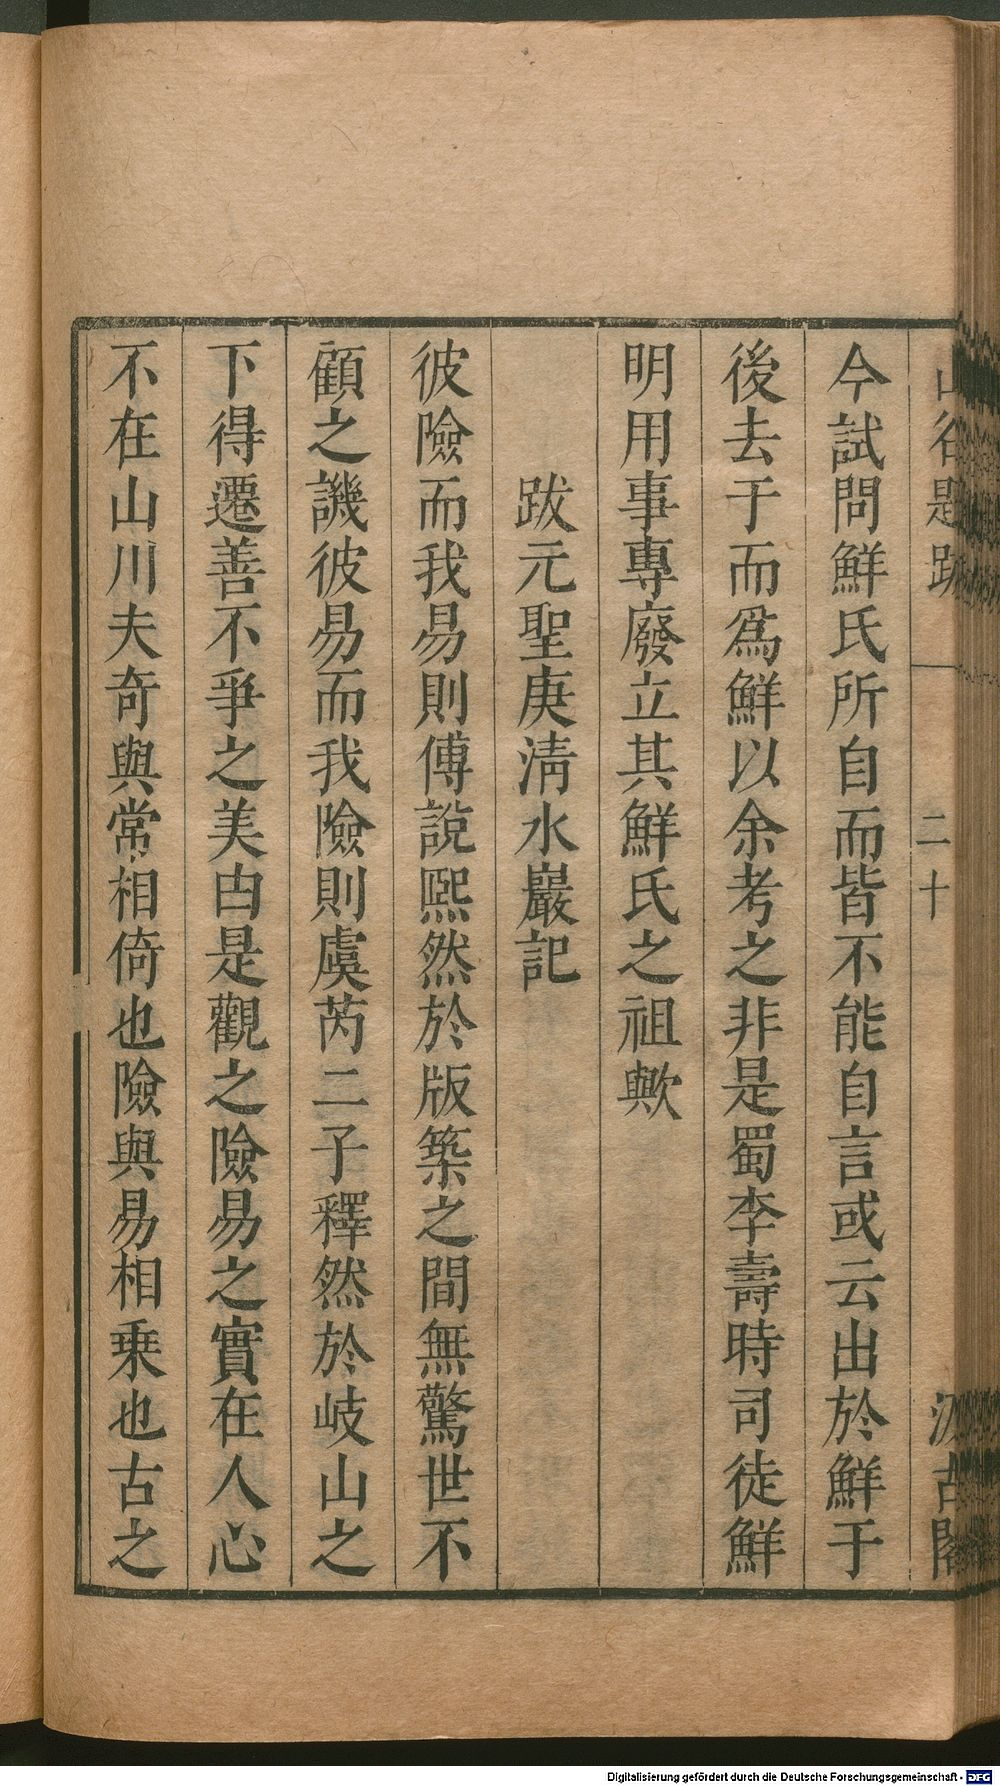 山谷題跋 二十 汲古閣
今試問鮮氏所自而皆不能自言或云出於鮮于
後去于而爲鮮以余考之非是蜀李壽時司徒鮮
明用事專廢立其鮮氏之祖歟
跋元聖庚淸水巖記
彼險而我易則傅說熙然於版築之間無驚世不
顧之譏彼易而我險則虞芮二子釋然於岐山之
下得遷善不爭之美由是觀之險易之實在人心
不在山川夫奇與常相倚也險與易相乗也古之
Digitalisierung gefördert durch die Deutsche Forschungsgemeinschaft - DFG